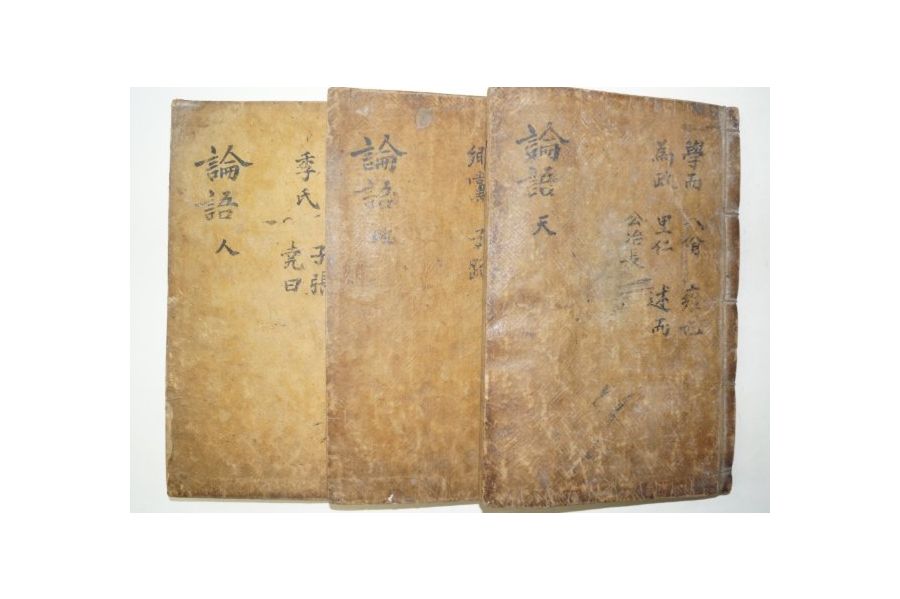 學而 八佾 雍也
為政 里仁 述而
公冶長
論語 天
鄉黨 子路
論語 地
季氏
子張
堯曰
論語 人